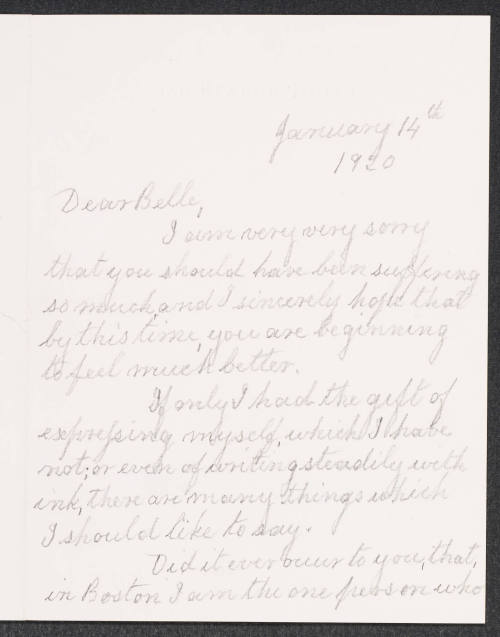 January 14th
1920
Dear Belle,
I am very very sorry
that you should have been suffering
so much, and I sincerely hope that
by this time, you are beginning
to feel much better.
If only I had the gift of
expressing myself, which I have
not; or even of writing steadily with
ink, there are many things which
I should like to say.
Did it ever occur to you, that,
in Boston I am the one person who